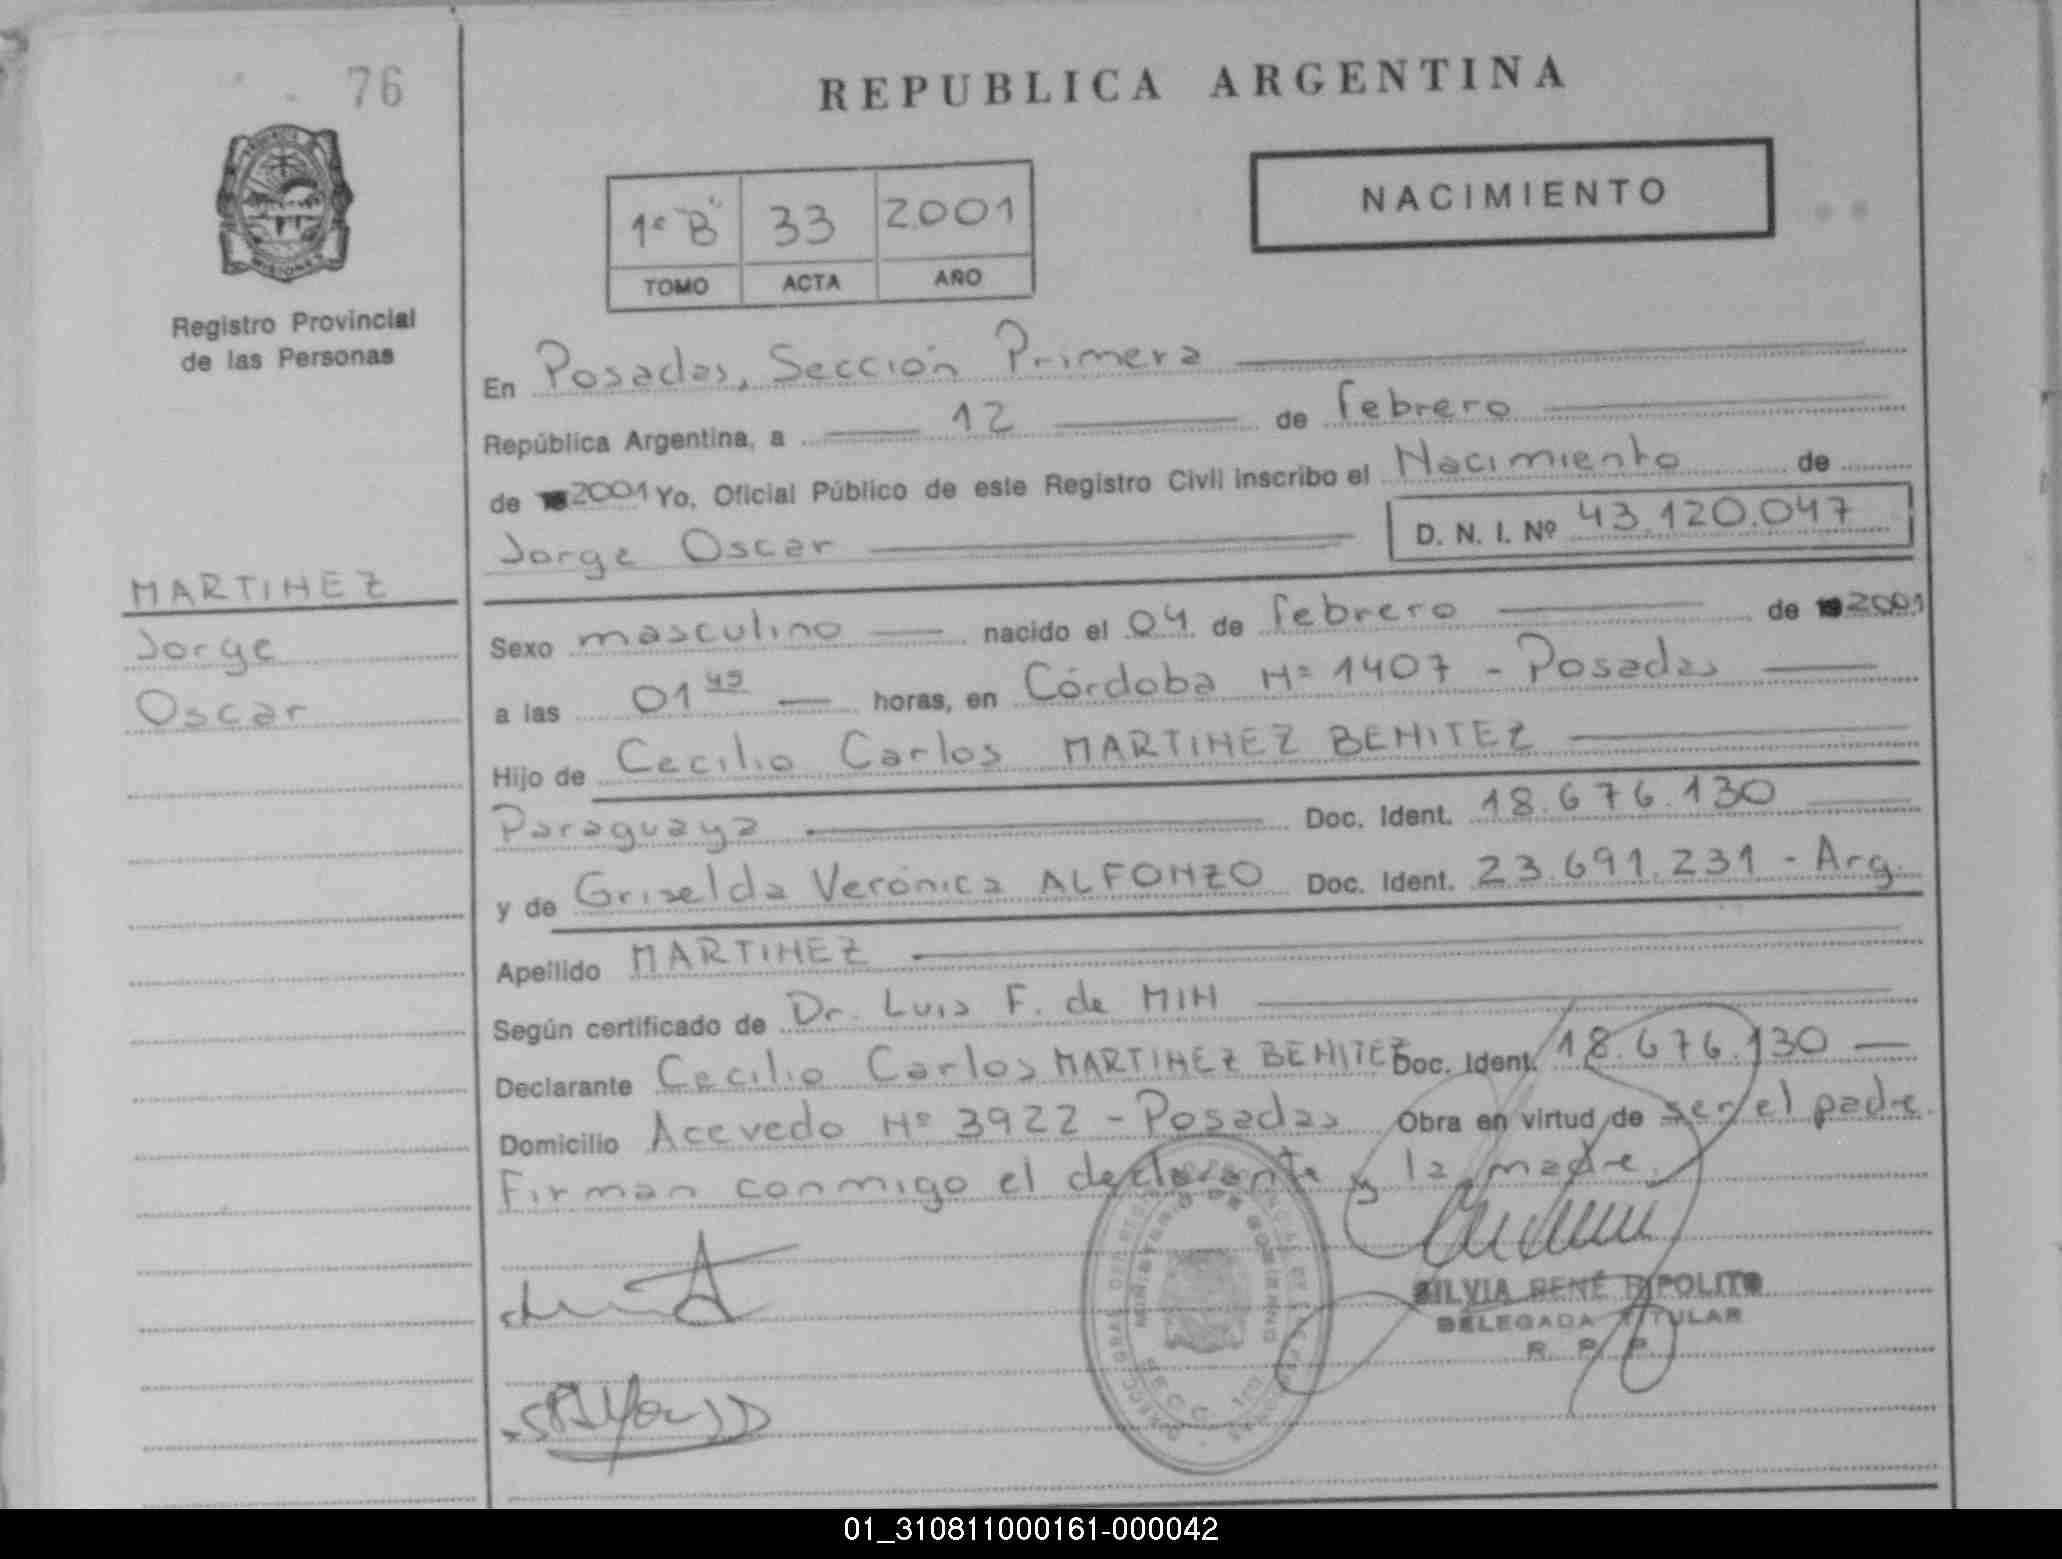 76
REPUBLICA ARGENTINA
NACIMIENTO
1º "B" 33 2.001
TOMO ACTA AÑO
PROVINCIA
MISIONES
Registro Provincial
de las Personas
En Posadas, Sección Primera
República Argentina, a 12 de febrero
de 2001 Yo, Oficial Público de este Registro Civil inscribo el Nacimiento de
Jorge Oscar D. N. I. Nº 43.120.047
MARTINEZ
Jorge
Oscar
Sexo masculino nacido el 04 de febrero de 2001
a las 01 45 horas, en Córdoba Nº 1407 - Posadas
Hijo de Cecilio Carlos MARTINEZ BENITEZ
Paraguaya Doc. Ident. 18.676.130
y de Griselda Verónica ALFONZO Doc. Ident. 23.691.231 - Arg.
Apellido MARTINEZ
Según certificado de Dr. Luis F. de MIN
Declarante Cecilio Carlos MARTINEZ BENITEZ Doc. Ident. 18.676.130
Domicilio Acevedo Nº 3922 - Posadas Obra en virtud de ser el padre.
Firman conmigo el declarante y la madre.
MINISTERIO DE GOBIERNO
SECC. 1ra
SILVIA RENÉ RIPOLITO
DELEGADA TITULAR
R. P. P.
01_310811000161-000042